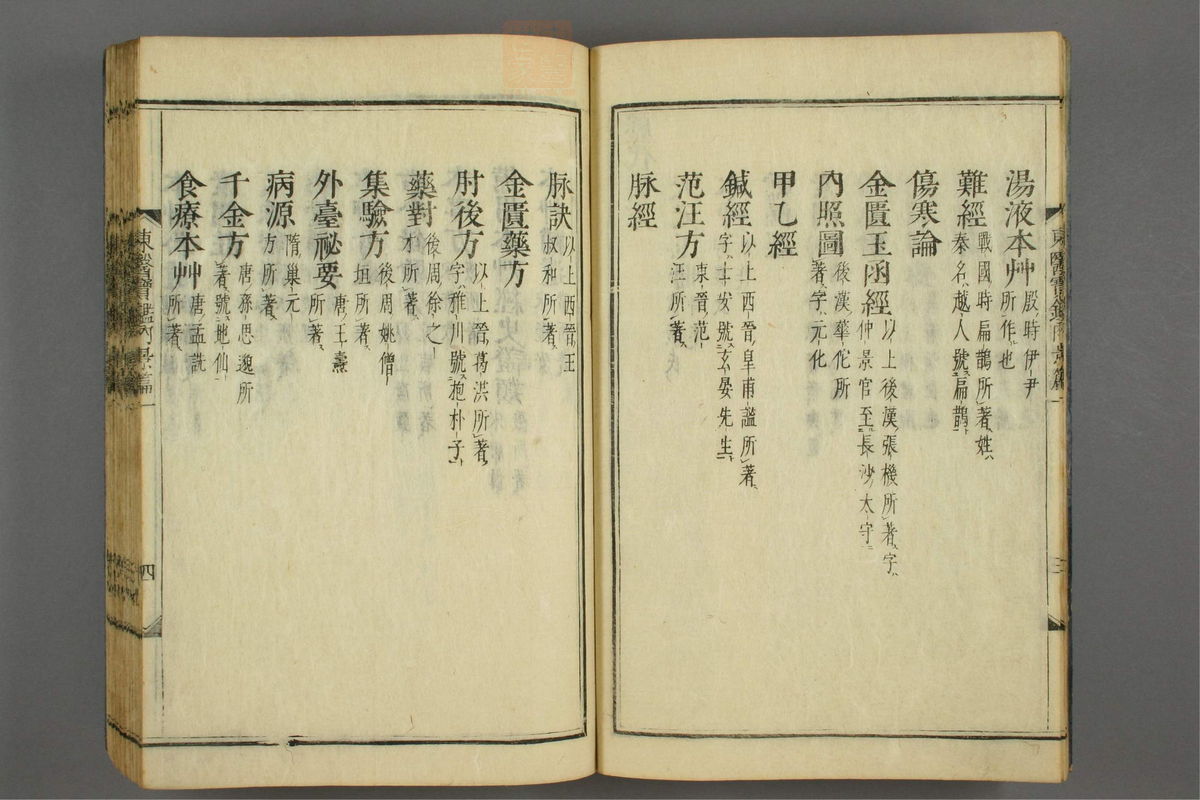 湯液本艸 殷時伊尹所作也
難經 戰國時扁鵲所著姓秦名越人號扁鵲
傷寒論
金匱玉函經 以上後漢張機所著字仲景官至長沙太守
內照圖 後漢華佗所著字元化
甲乙經
鍼經 以上西晉皇甫謐所著字士安號玄晏先生
范汪方 東晉范汪所著
脉經
脉訣 以上西晉王叔和所著
金匱藥方
肘後方 以上晉葛洪所著字稚川號抱朴子
藥對 後周徐之才所著
集驗方 後周姚僧垣所著
外臺祕要 唐王燾所著
病源 隋巢元方所著
千金方 唐孫思邈所著號地仙
食療本艸 唐孟詵所著
東醫寶鑑內景篇一
三
東醫寶鑑內景篇一
四